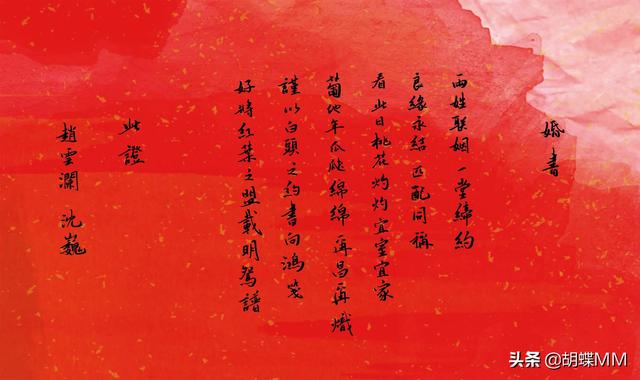 婚書
两姓联姻 一堂締約
良緣永結 匹配同稱
看此日桃花灼灼宜室宜家
蔔他年瓜瓞綿綿 爾昌爾熾
謹以白頭之約書向鴻箋
好將紅葉之盟載明鴛譜
此證
趙雲瀾 沈巍
头条 @胡蝶MM